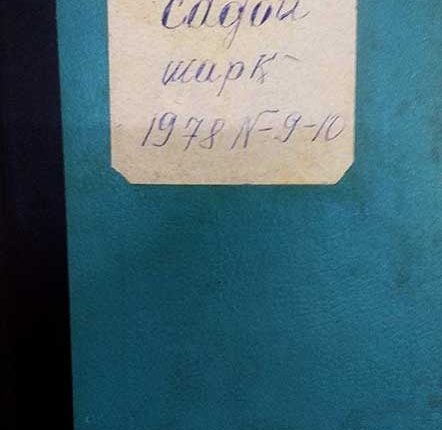 Садои
шарқ
1978 N-9-10